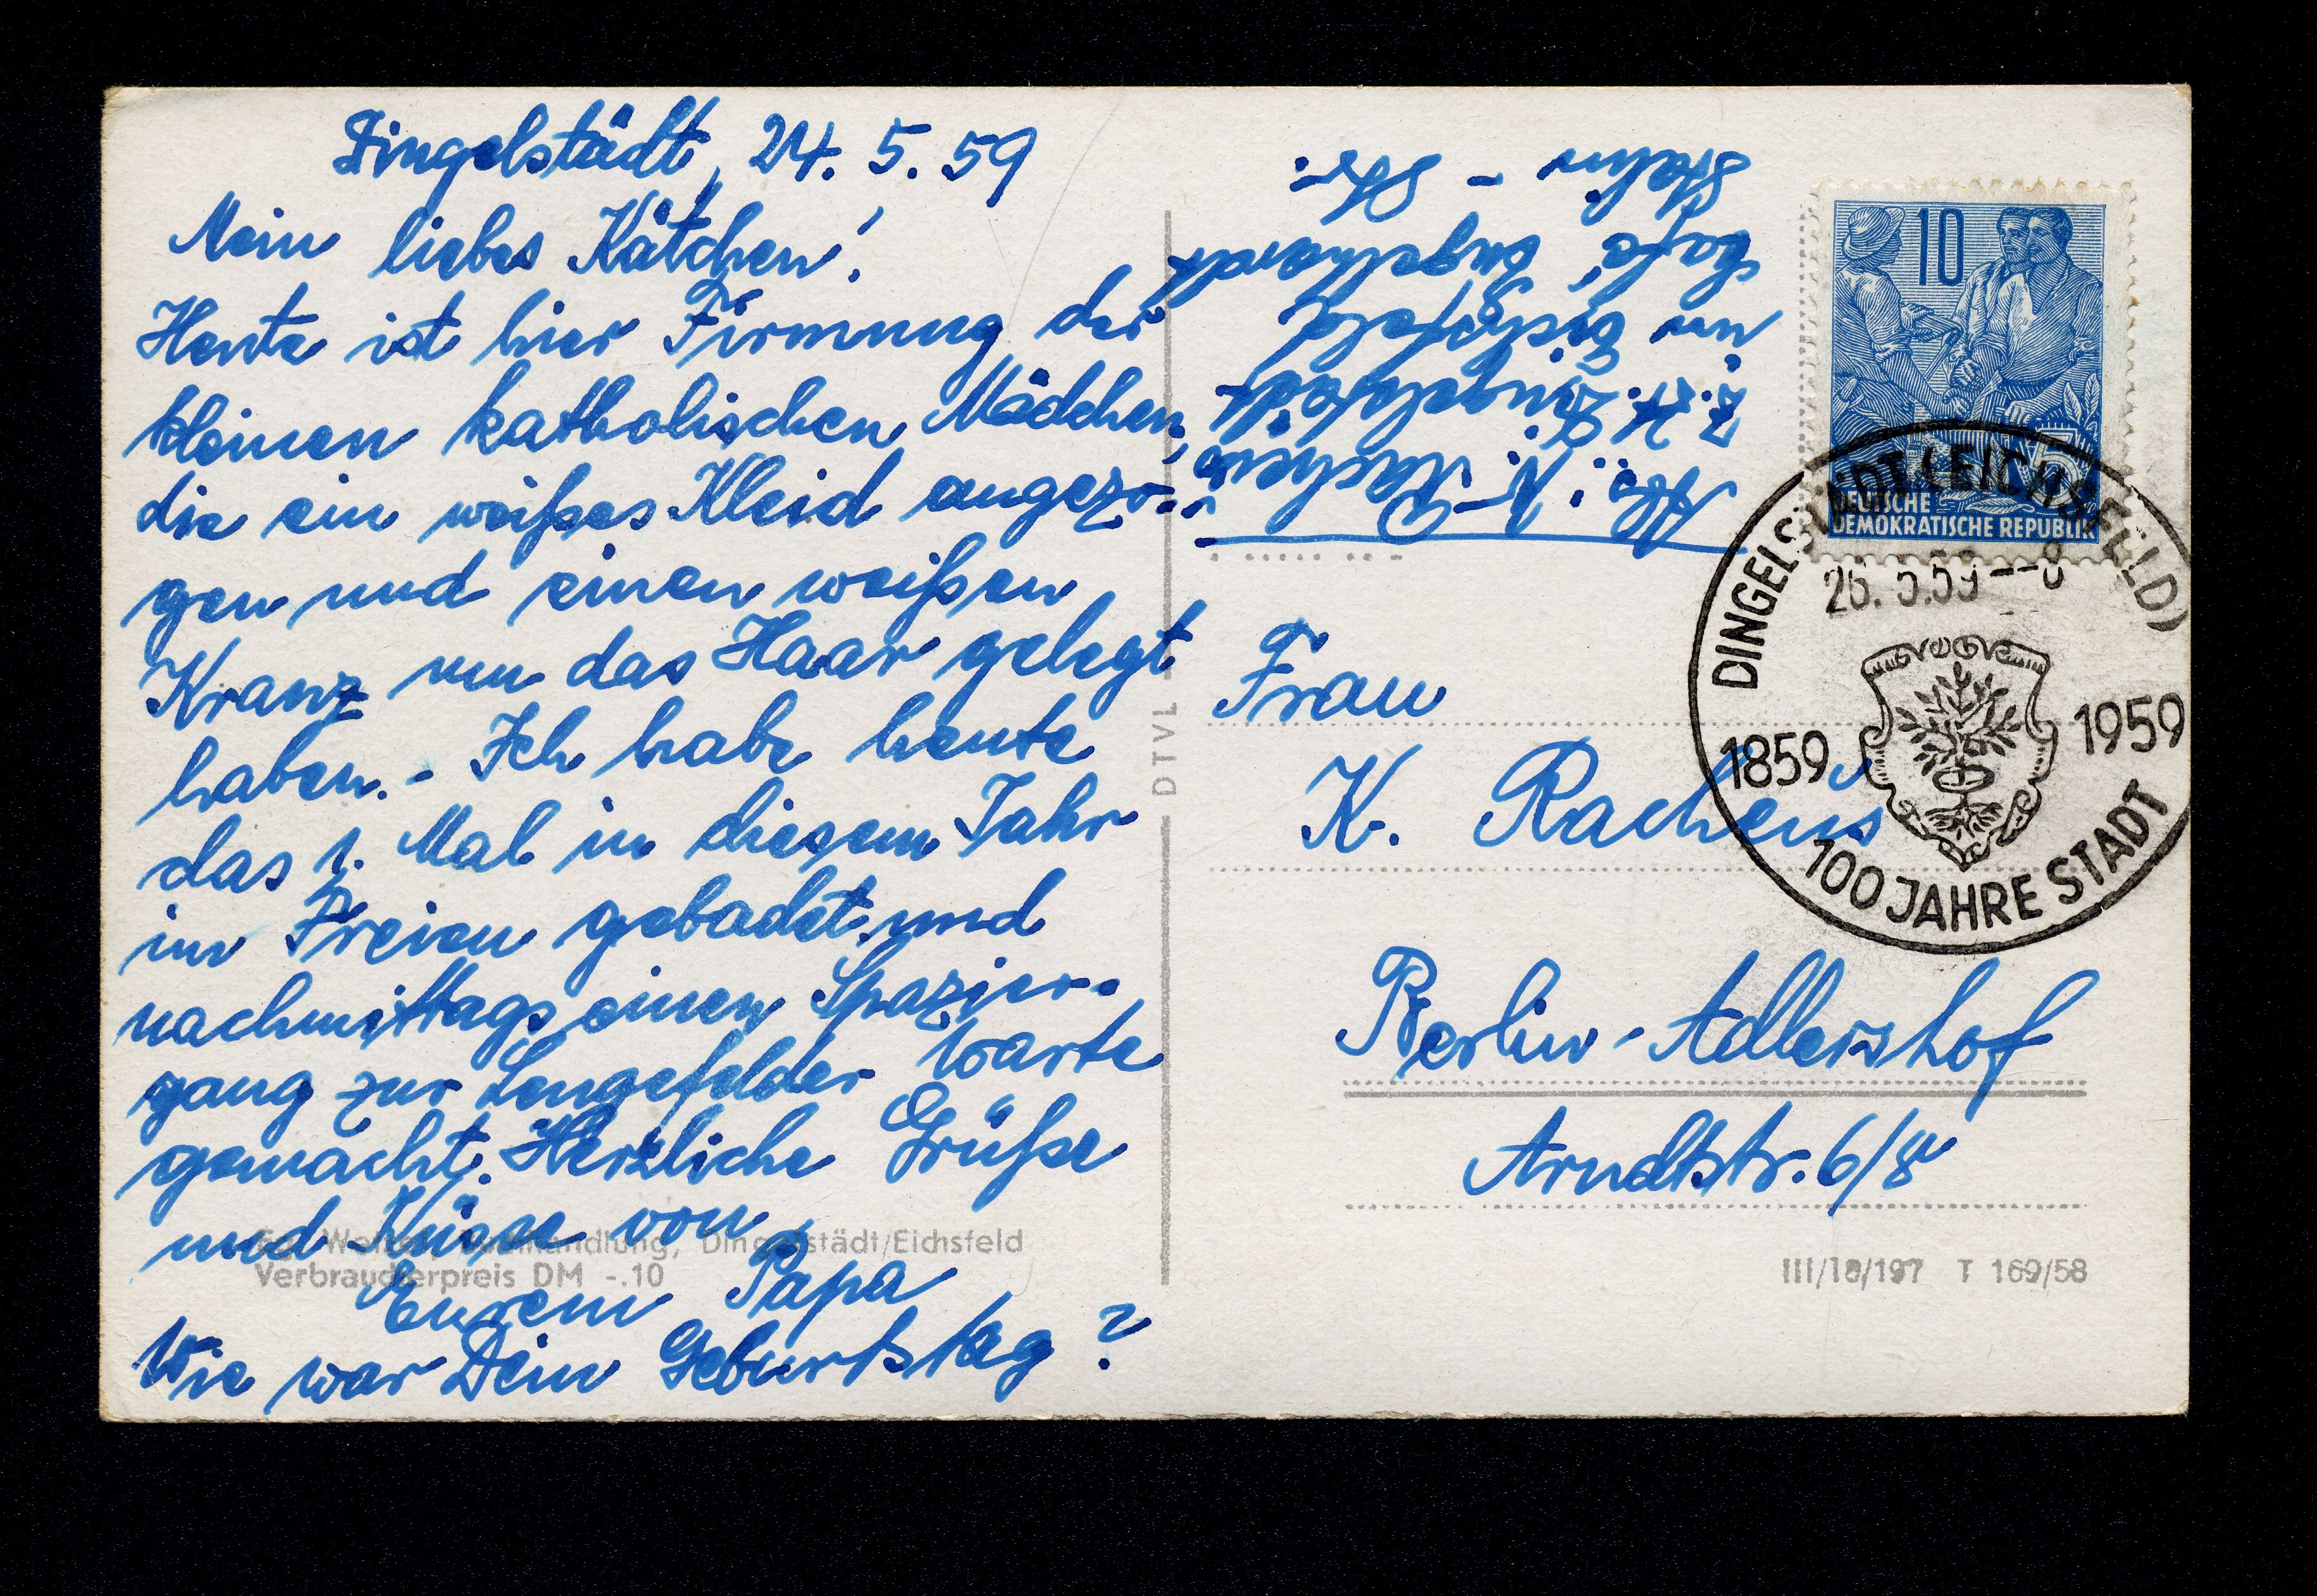 Dingelstädt, 24. 5. 59
Mein liebes Kätchen!
Heute ist hier Firmung der
kleinen katholischen Mädchen,
die ein weißes Kleid angezo-
gen und einen weißen
Kranz um das Haar gelegt
haben. - Ich habe heute
das 1. Mal in diesem Jahr
im Freien gebadet und
nachmittags einen Spazier-
gang zur Lengefelder Warte
gemacht. Herzliche Grüße
und Küsse von
Eurem Papa
Wie war Dein Geburtstag?
Buchhandlung, Dingelstädt/Eichsfeld
Verbraucherpreis DM -.10
DTVL
Abs.:
z. Zt. Dingelstädt
um Eichsfeld
10
DEUTSCHE
DEMOKRATISCHE REPUBLIK
DINGELSTÄDT (EICHSFELD)
26. 5.59 --8
1859 1959
100 JAHRE STADT
Frau
K. Racheus
Berlin-Adlershof
Arndtstr. 6/8
III/18/197 T 169/58